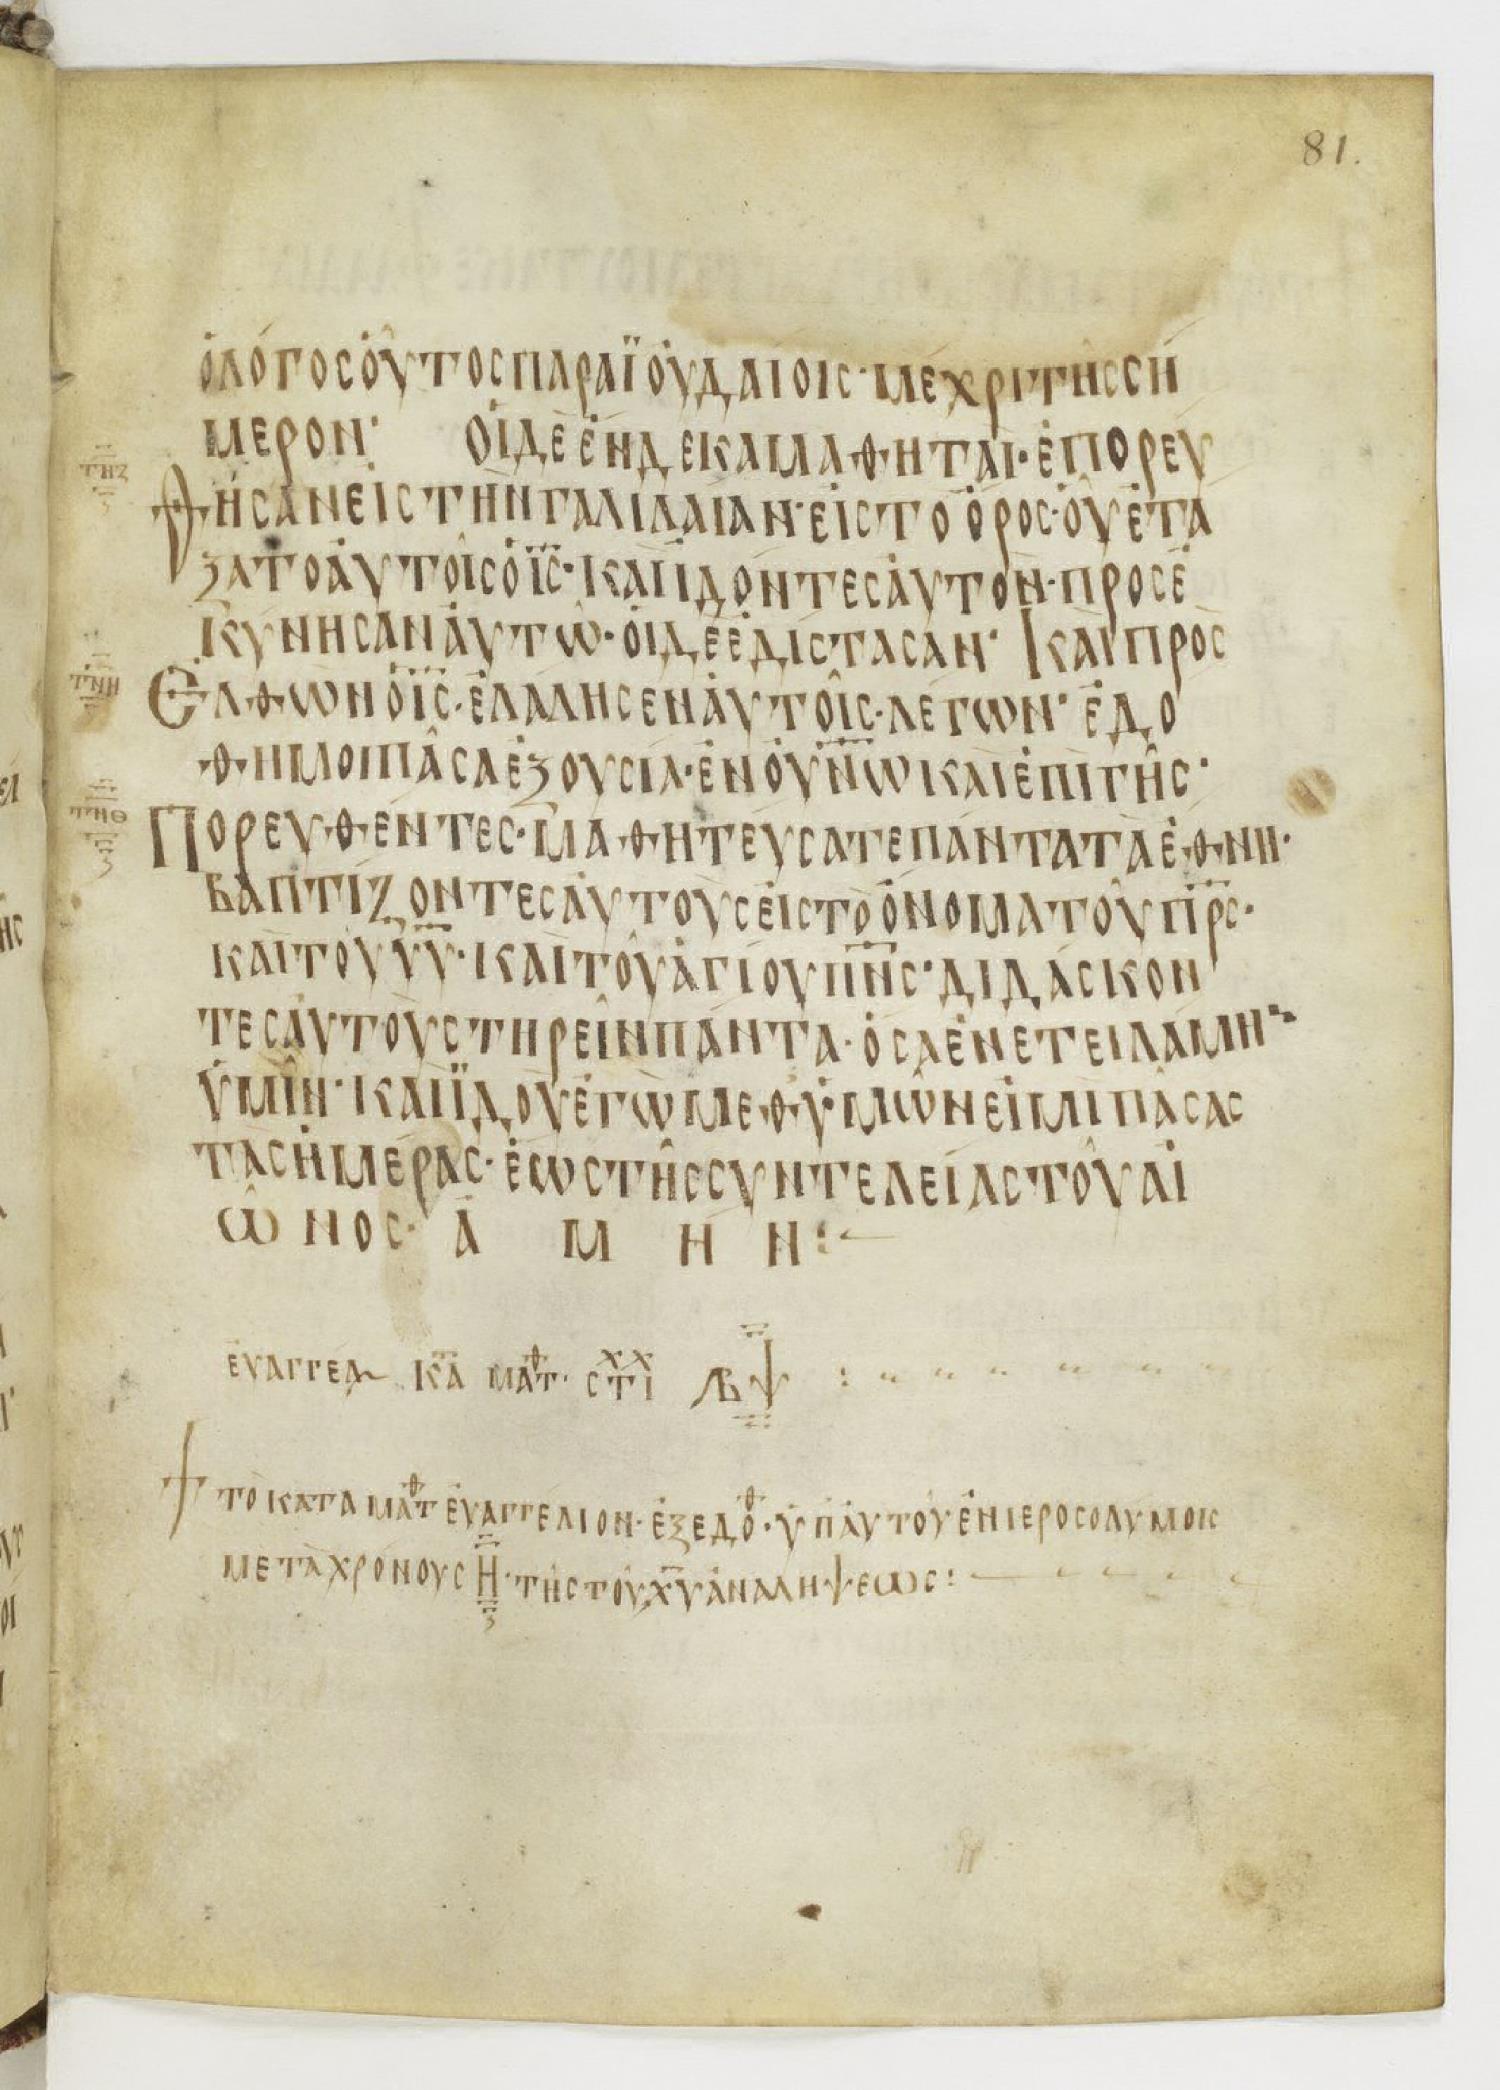 81.
ὁ λόγος οὗτος παρὰ ἰουδαίοις· μέχρι τῆς σή
μερον· οἱ δὲ ἕνδεκα μαθηταὶ· ἐπορεύ
τνζ
θησαν εἰς τὴν γαλιλαίαν· εἰς τὸ ὄρος· οὗ ἐτά
ξατο αὐτοῖς ὁ ις· καὶ ἰδόντες αὐτὸν· προσε
κύνησαν αὐτῶ· οἱ δὲ ἐδίστασαν· καὶ προς
τνη
ελθὼν ὁ ις· ἐλάλησεν αὐτοῖς· λέγων· ἐδό
θη μοι πᾶσα ἐξουσία· ἐν οὐνω καὶ ἐπὶ γῆς·
τνθ
Πορευθέντες· μαθητεύσατε πάντα τὰ ἔθνη·
βαπτίζοντες αὐτοὺς εἰς τὸ ὄνομα τοῦ πρς·
καὶ τοῦ υυ· καὶ τοῦ ἁγίου πνς· διδάσκον
τες αὐτοὺς τηρεῖν πάντα· ὅσα ἐνετειλάμην
ὑμῖν· καὶ ἰδοὺ ἐγὼ μεθ ὑμῶν εἰμὶ πάσας
τὰς ἡμέρας· ἕως τῆς συντελείας τοῦ αἰ
ῶνος· ἀ μ η ν :
ἐυαγγελ κατ ματθ· στιχχ ͵βψ :
+ τὸ κατα ματθ ἐυαγγέλιον· ἐξεδόθ· ὑπ αὐτοῦ ἐν ιεροσολύμοις
μετὰ χρόνους η· τῆς τοῦ χυ ἀναλήψεως: